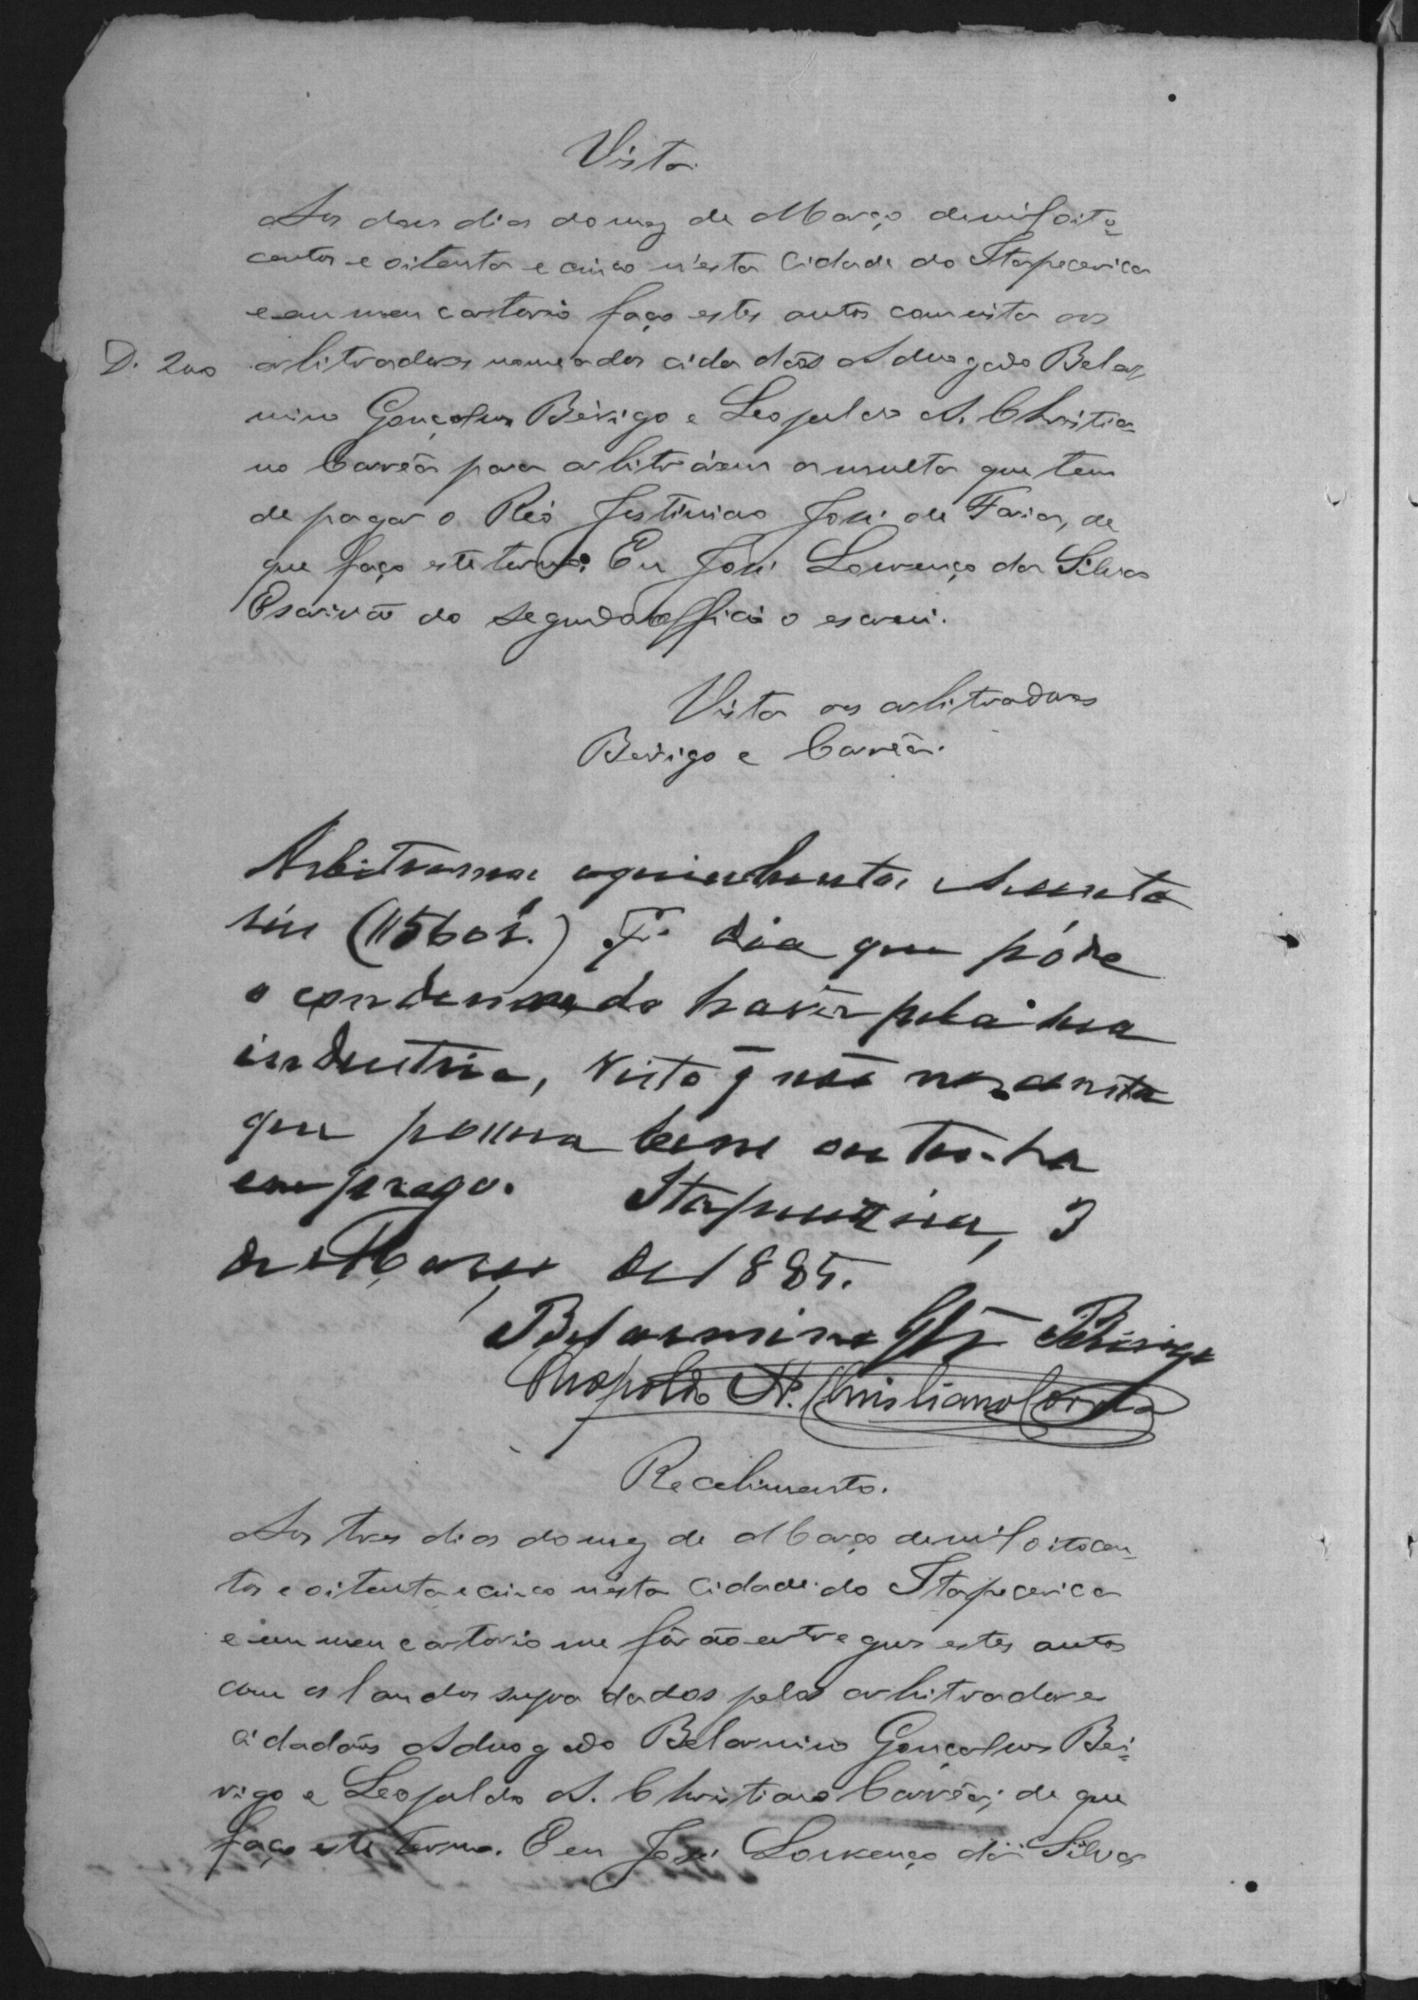 Vista
Aos dous dias do mez de Março de mil oito-
centos e oitenta e cinco n'esta Cidade do Itapecerica
e em meu cartorio faço estes autos com vista aos
D. 200 arbitradores nomeados cidadãos Advogado Belar-
mino Gonçalves Bévigo e Leopoldo A. Christia-
no Corrêa para arbitrárem a multa que tem
de pagar o Réo Justinian José de Faria, de
que faço este termo. Eu José Lourenço da Silva
Escrivão do segundo officio o escrevi.
Vista aos arbitradores
Bevigo e Corrêa.
Arbitramos a quinhentos secenta
reis ("560rs.) p. dia que póde
o condemnado haver pela sua
industria, visto q não nos consta
que possua bens ou tenha
emprego. Itapecerica, 3
de Março de 1885.
Belarmino Glz
Leopoldo A. Christiano Corrêa
Recebimento.
Aos tres dias do mez de Março de mil oitocen-
tos e oitenta e cinco n'esta Cidade do Itapecerica
e em meu cartorio me fôrão entregues estes autos
com os laudos supra dados pelos arbitradores
cidadãos Advogado Belarmino Gonçalves Bé-
vigo e Leopoldo A. Christiano Corrêa; de que
faço este termo. E eu José Lourenço da Silva